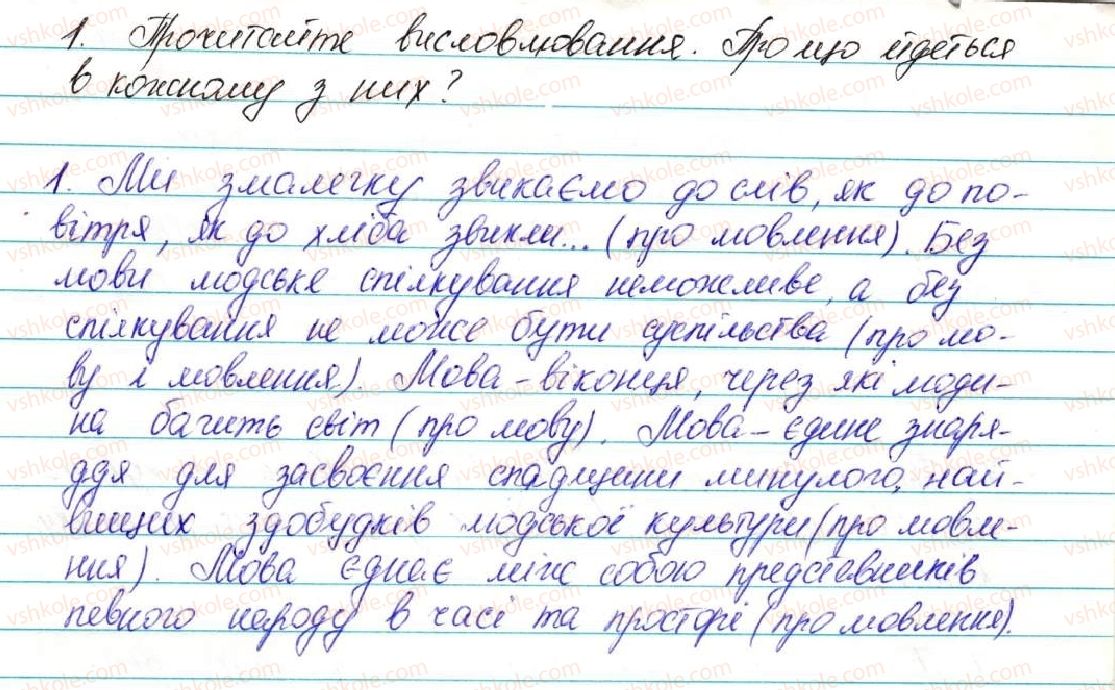 1. Прочитайте висловлювання. Про що йдеться
в кожному з них?
1. Ми змалечку звикаємо до слів, як до по-
вітря, як до хліба звикли... (про мовлення). Без
мови людське спілкування неможливе, а без
спілкування не може бути суспільства (про мо-
ву і мовлення). Мова - віконця, через які люди-
на бачить світ (про мову). Мова - єдине знаря-
ддя для засвоєння спадщини минулого, най-
вищих здобудків людської культури (про мовле-
ння). Мова єднає між собою представників
певного народу в часі та просторі (про мовлення).